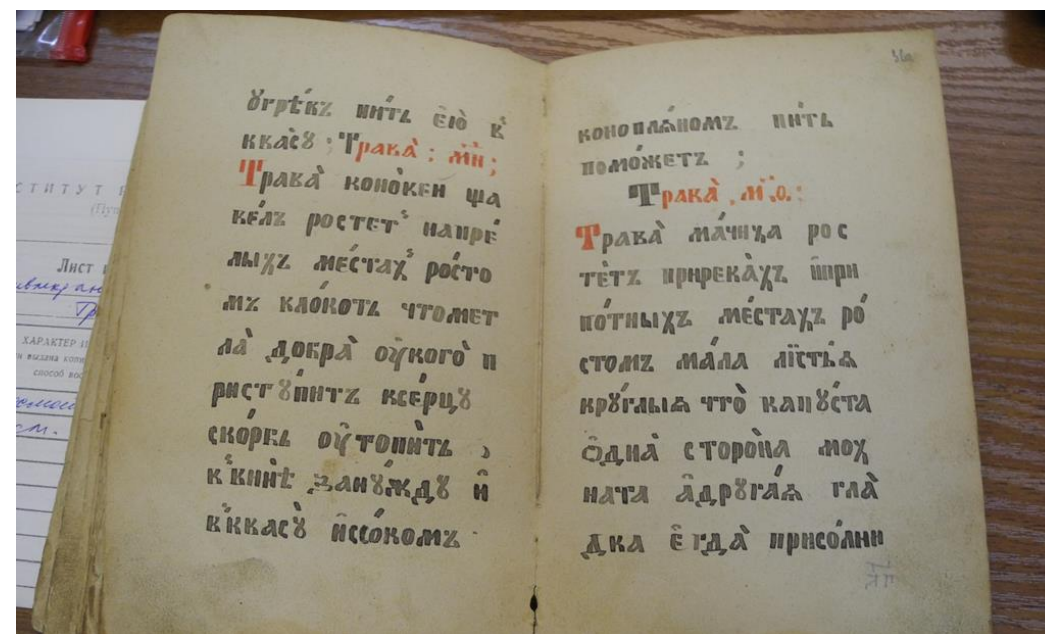 ꙋгрѣ́въ пи́ть є҆ю̀ в̾
ква́сꙋ ; Трава̀ : м҃и ;
Трава̀ коню́хеи ща
ве́ль росте́т̾ напрѣ́
лыхъ ме́стах̾ ро́сто
мъ кло́коть чтомет
ла̀ добра̀ ᲂу҆кого̀ п
ристꙋ́питъ ксе́рцꙋ
ско́рбь ᲂу҆топи́ть ,
в̾винѣ̀ занꙋ́ждꙋ и҆
в̾квасꙋ̀ и҆ссо́комъ
конопла́номъ пи́ть
помо́жетъ ;
Трава̀ . м҃ѳ :
Трава̀ ма́чиха рос
те́тъ прирека́хъ и҆при
по́тныхъ ме́стахъ ро́
стомъ ма́ла ли́стьѧ
крꙋ́глыѧ что̀ капꙋ́ста
ѻ҆дна̀ сторона̀ мох
ната а҆дрꙋга́ѧ гла̀
дка є҆гда̀ присо́лни
Лист
ХАРАКТЕР И